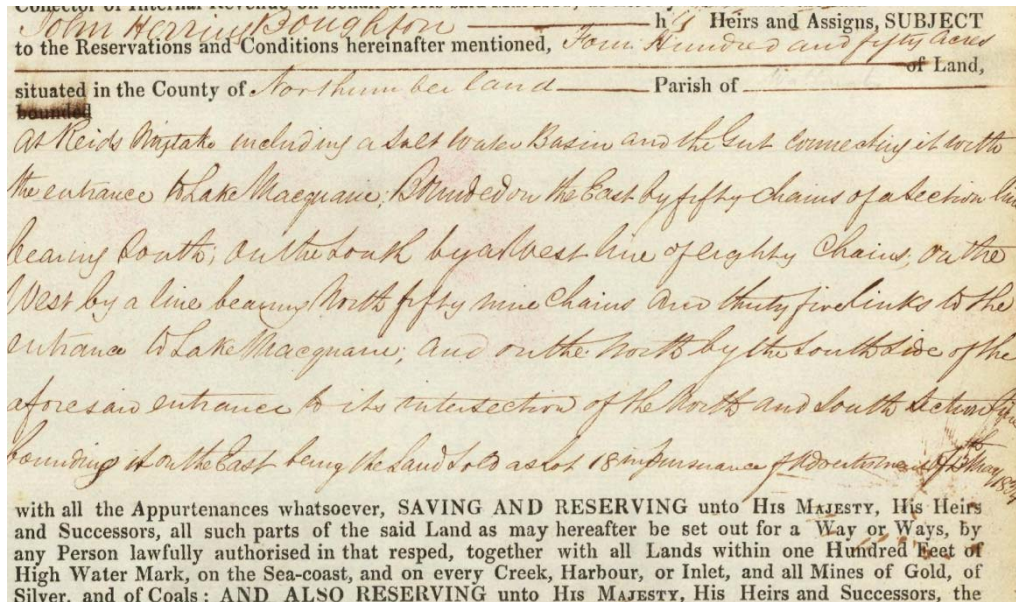 Collector of Internal Revenue on behalf of His said
John Herring Boughton h is Heirs and Assigns, SUBJECT
to the Reservations and Conditions hereinafter mentioned, Four Hundred and fifty Acres
of Land,
situated in the County of Northumberland Parish of
bounded
At Reids Mistake including a Salt Water Basin and the Gut connecting it with
the entrance to Lake Macquarie; Bounded on the East by fifty Chains of a Section line
bearing South; on the South by a West line of eighty Chains; on the
West by a line bearing North fifty nine Chains and thirty five links to the
entrance to Lake Macquarie; and on the North by the South side of the
aforesaid entrance to its intersection of the North and South Section line
bounding it on the East being the Land Sold as Lot 18 in pursuance of Advertisement of May
with all the Appurtenances whatsoever, SAVING AND RESERVING unto HIS MAJESTY, His Heirs
and Successors, all such parts of the said Land as may hereafter be set out for a Way or Ways, by
any Person lawfully authorised in that resped, together with all Lands within one Hundred Feet of
High Water Mark, on the Sea-coast, and on every Creek, Harbour, or Inlet, and all Mines of Gold, of
Silver, and of Coals; AND ALSO RESERVING unto HIS MAJESTY, His Heirs and Successors, the